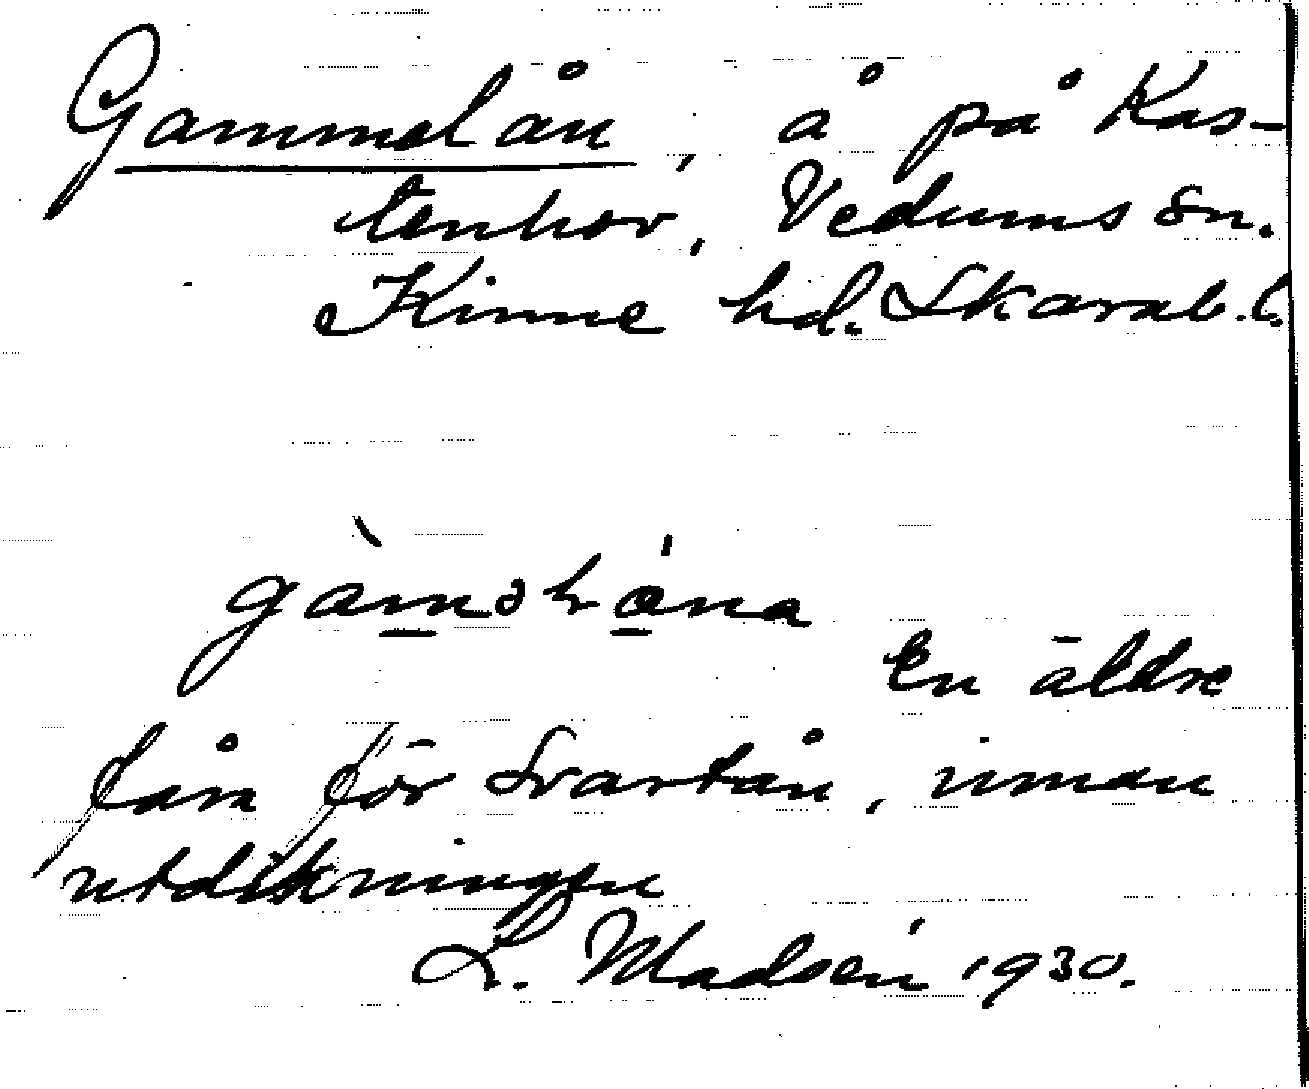 Gammelån, å på Kas-
tenhov, Vedums sn.
Kinne hd. Skarab. l.
gàməɫána
En äldre
fåra för Svartån, innan
utdikningen
L. Madsén 1930.